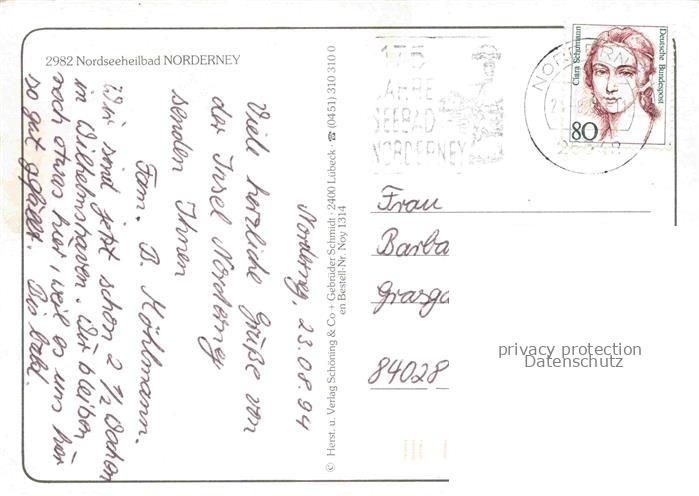 2982 Nordseeheilbad NORDERNEY
Norderney, 23.08.94
Viele herzliche Grüße von
der Insel Norderney
senden Ihnen
Fam. B. Köhlmann.
Wir sind jetzt schon 2 1/2 Wochen
in Wilhelmshaven. Wir bleiben
noch etwas hier, weil es uns hier
so gut gefällt. Bis bald.
© Herst. u. Verlag Schöning & Co + Gebrüder Schmidt · 2400 Lübeck · ☎ (0451) 310 310 0
en Bestell-Nr. Noy 1314
175
JAHRE
SEEBAD
NORDERNEY
NORDERNEY
26548
Clara Schumann
Deutsche Bundespost
80
Frau
Barba
Grasga
84028
privacy protection
Datenschutz